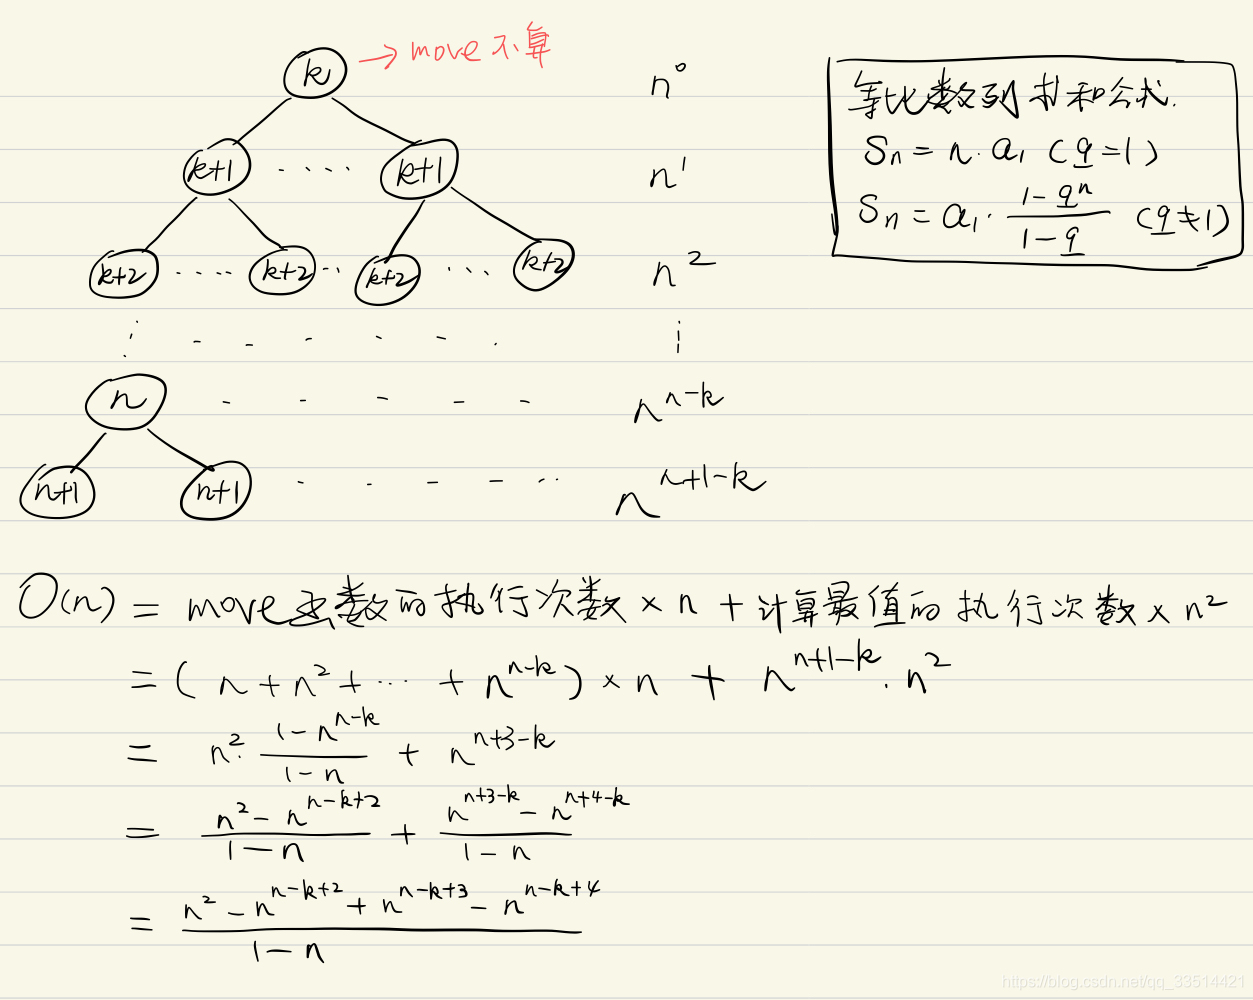 k → move 不算 n⁰
k+1 ..... k+1 n¹
k+2 ..... k+2 ... k+2 ... k+2 n²
n - - - - - n^{n-k}
n+1 n+1 - - - - - n^{n+1-k}
等比数列求和公式.
Sₙ = n·a₁ (q=1)
Sₙ = a₁·\frac{1-qⁿ}{1-q} (q≠1)
O(n) = move函数的执行次数 × n + 计算最值的执行次数 × n²
= (n + n² + ... + n^{n-k}) × n + n^{n+1-k}·n²
= n²·\frac{1-n^{n-k}}{1-n} + n^{n+3-k}
= \frac{n²-n^{n-k+2}}{1-n} + \frac{n^{n+3-k}-n^{n+4-k}}{1-n}
= \frac{n²-n^{n-k+2}+n^{n-k+3}-n^{n-k+4}}{1-n}
https://blog.csdn.net/qq_33514421